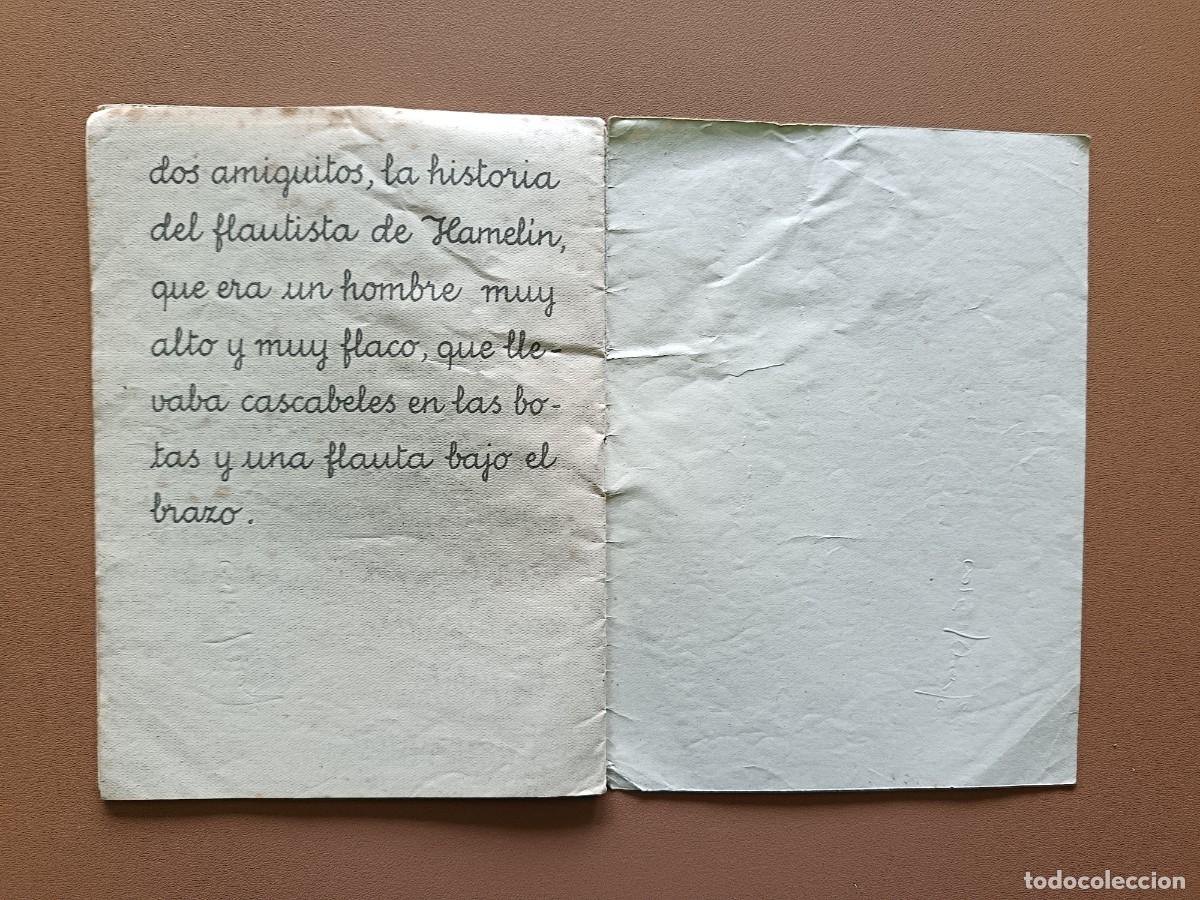 dos amiguitos, la historia
del flautista de Hamelín,
que era un hombre muy
alto y muy flaco, que lle-
vaba cascabeles en las bo-
tas y una flauta bajo el
brazo.
todocoleccion